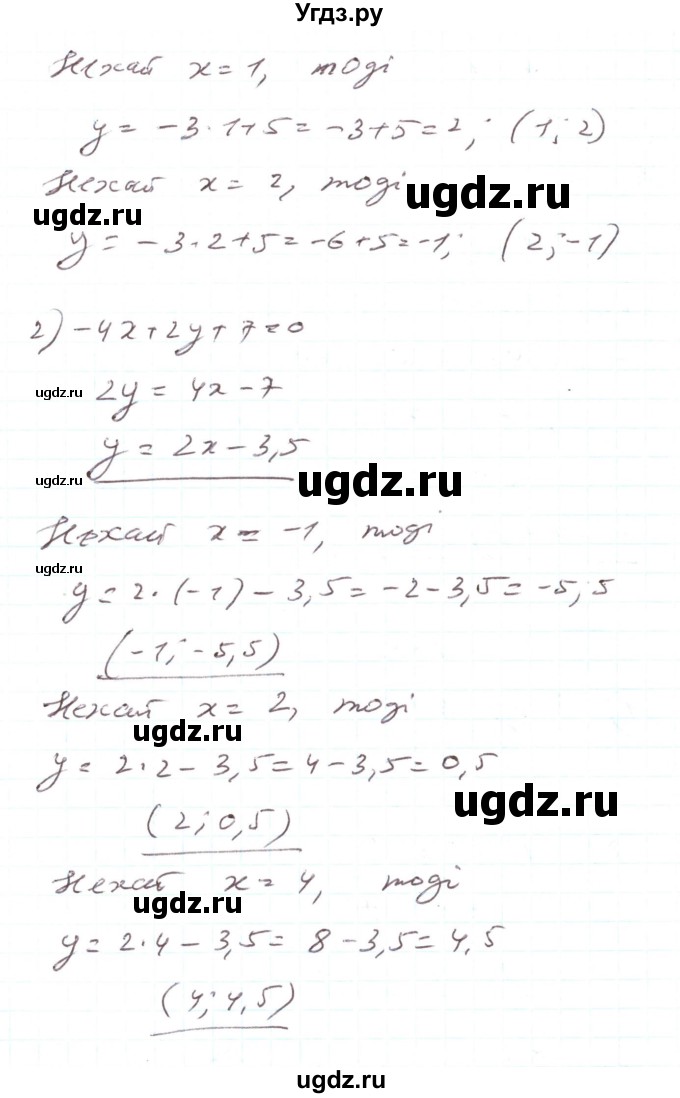 Угдз.ру
Нехай x = 1, тоді
y = -3·1+5 = -3+5 = 2; (1; 2)
Нехай x = 2, тоді
ugdz.ru
ugdz.ru
y = -3·2+5 = -6+5 = -1; (2; -1)
2) -4x+2y+7=0
ugdz.ru
2y = 4x-7
y = 2x-3,5
ugdz.ru
ugdz.ru
Нехай x = -1, тоді
ugdz.ru
y = 2·(-1)-3,5 = -2-3,5 = -5,5
(-1; -5,5)
Нехай x = 2, тоді
ugdz.ru
y = 2·2-3,5 = 4-3,5 = 0,5
ugdz.ru
(2; 0,5)
Нехай x = 4, тоді
ugdz.ru
y = 2·4-3,5 = 8-3,5 = 4,5
(4; 4,5)
ugdz.ru